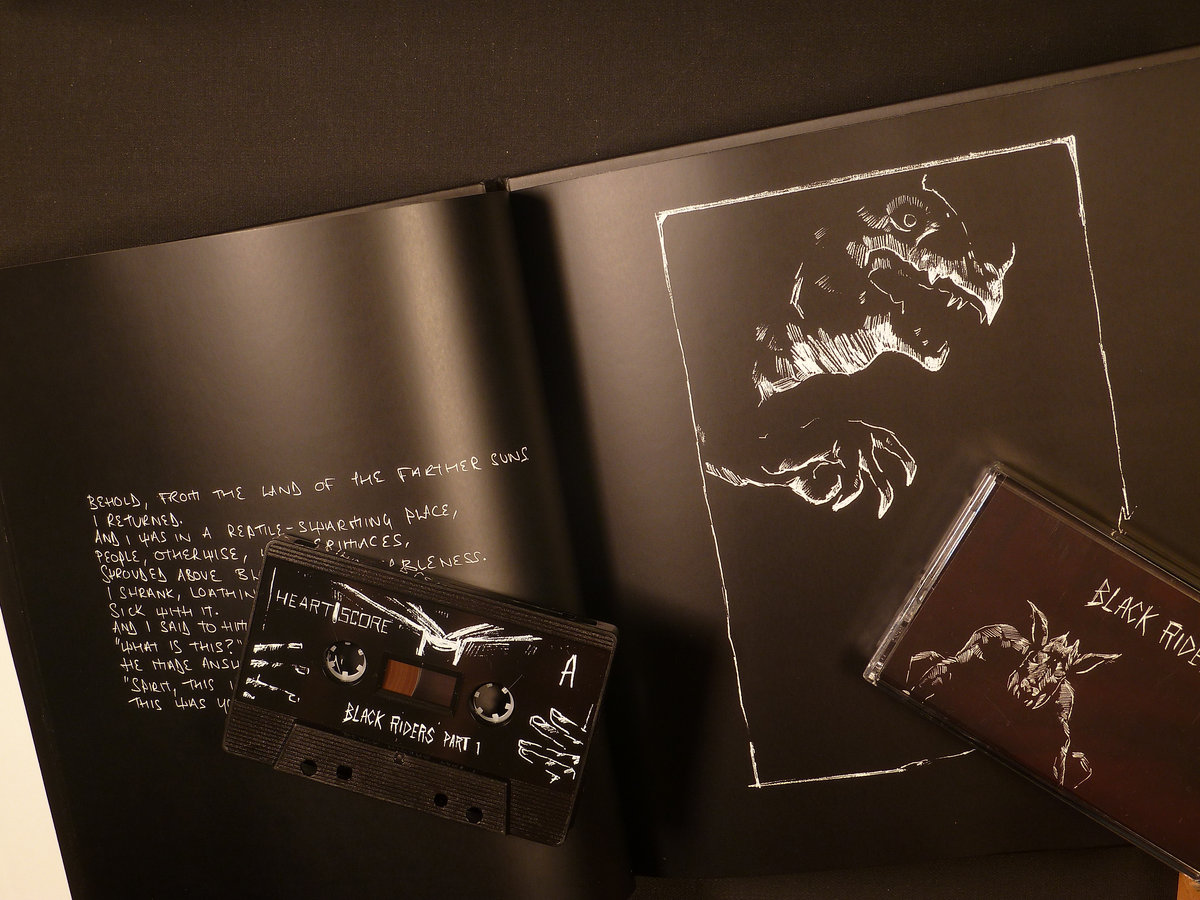 BEHOLD, FROM THE LAND OF THE FARTHER SUNS
I RETURNED.
AND I WAS IN A REPTILE-SWARMING PLACE,
PEOPLED, OTHERWISE, GRIMACES,
SHROUDED ABOVE
I SHRANK, LOATHING
SICK WITH IT.
AND I SAID TO HIM
"WHAT IS THIS?"
HE MADE
"SPIRIT, THIS
THIS WAS
HEART SCORE
A
BLACK RIDERS PART 1
BLACK